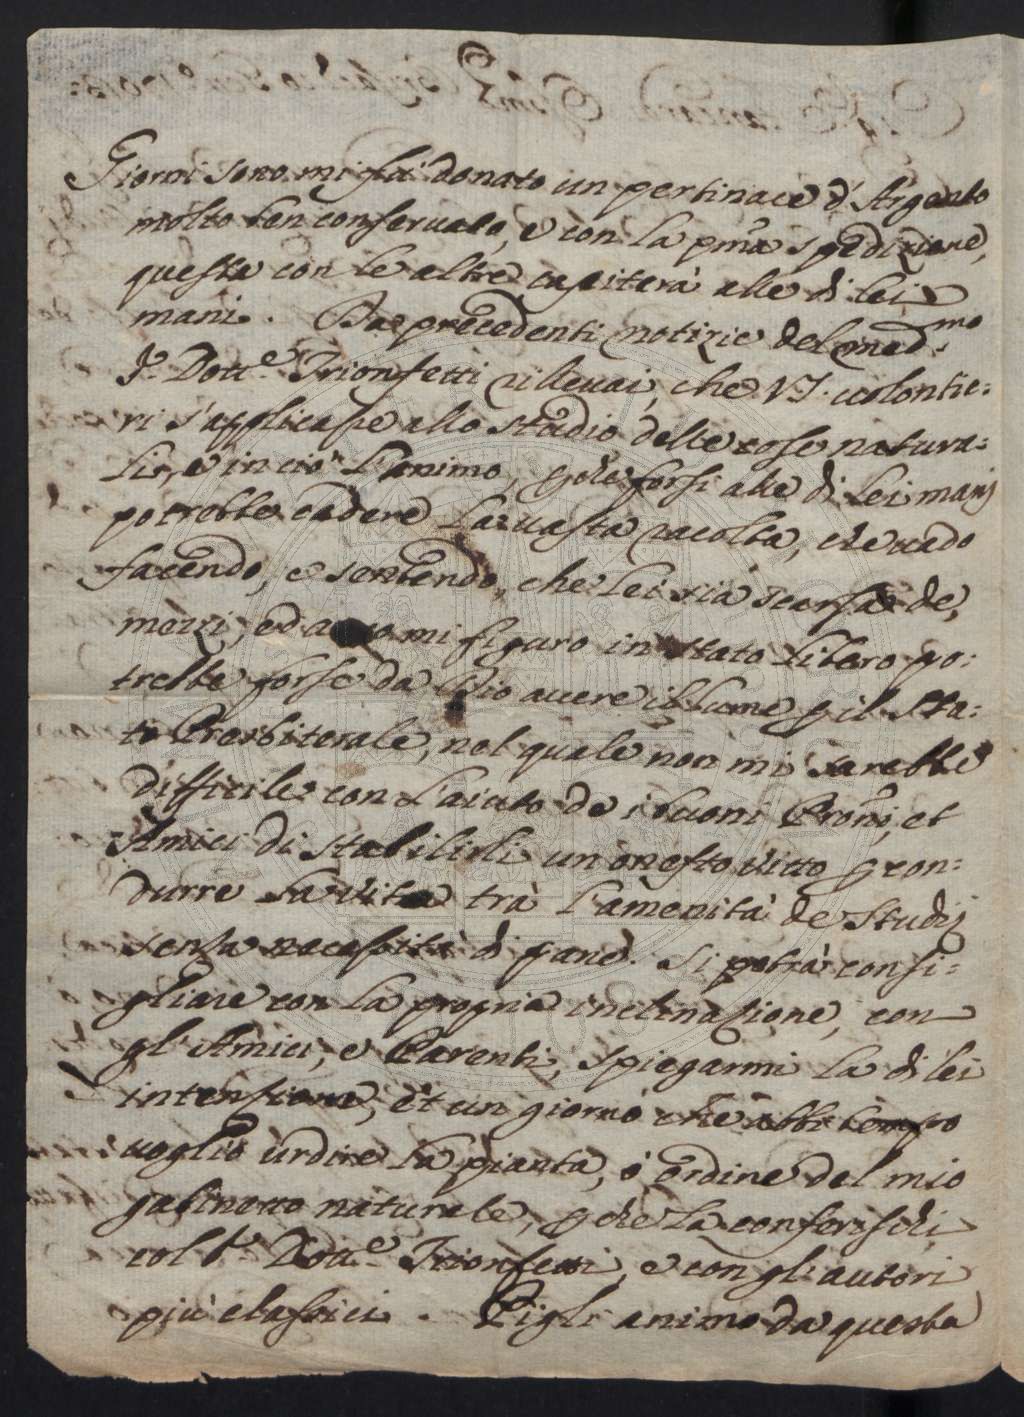 Giorni sono mi fu donato un pertinace d'Argento
molto ben conseruato, e con la pma spedizione,
questa con le altre capiterà alle di lei
mani. Da precedenti notizie del medmo
Sr Dotte Trionfetti rilleuai, che VS. uolontie:
ri s'applicasse allo studio delle cose natura:
li, e in ciò l'animo, pche forsi alle di lei manj
potrebbe cadere la uasta racolta, che uado
facendo, e sentendo, che lei sia scarsa de,
mezzi, ed mi figuro in stato libero po:
trebbe forse da Dio auere il lume p il Sta:
to Presbiterale, nel quale non mi sarebbe
difficile con l'aiuto de i buoni Proni, et
Amici di stabilirli un onesto uitto p con:
durre la uita trà l'amenità de Studij
senza necessità di pane. Si potrà consi:
gliare con la propria inclinasione, con
gl'Amici, e Parenti, spiegarmi la di lei
intensione, et un giorno che abbi tempo
uoglio urdire la pianta, ò ordine del mio
gabinetto naturale, pche la conferischi
col Sr Dotte Trionfetti, e con gl'autori
più classici. Pigli animo da questa